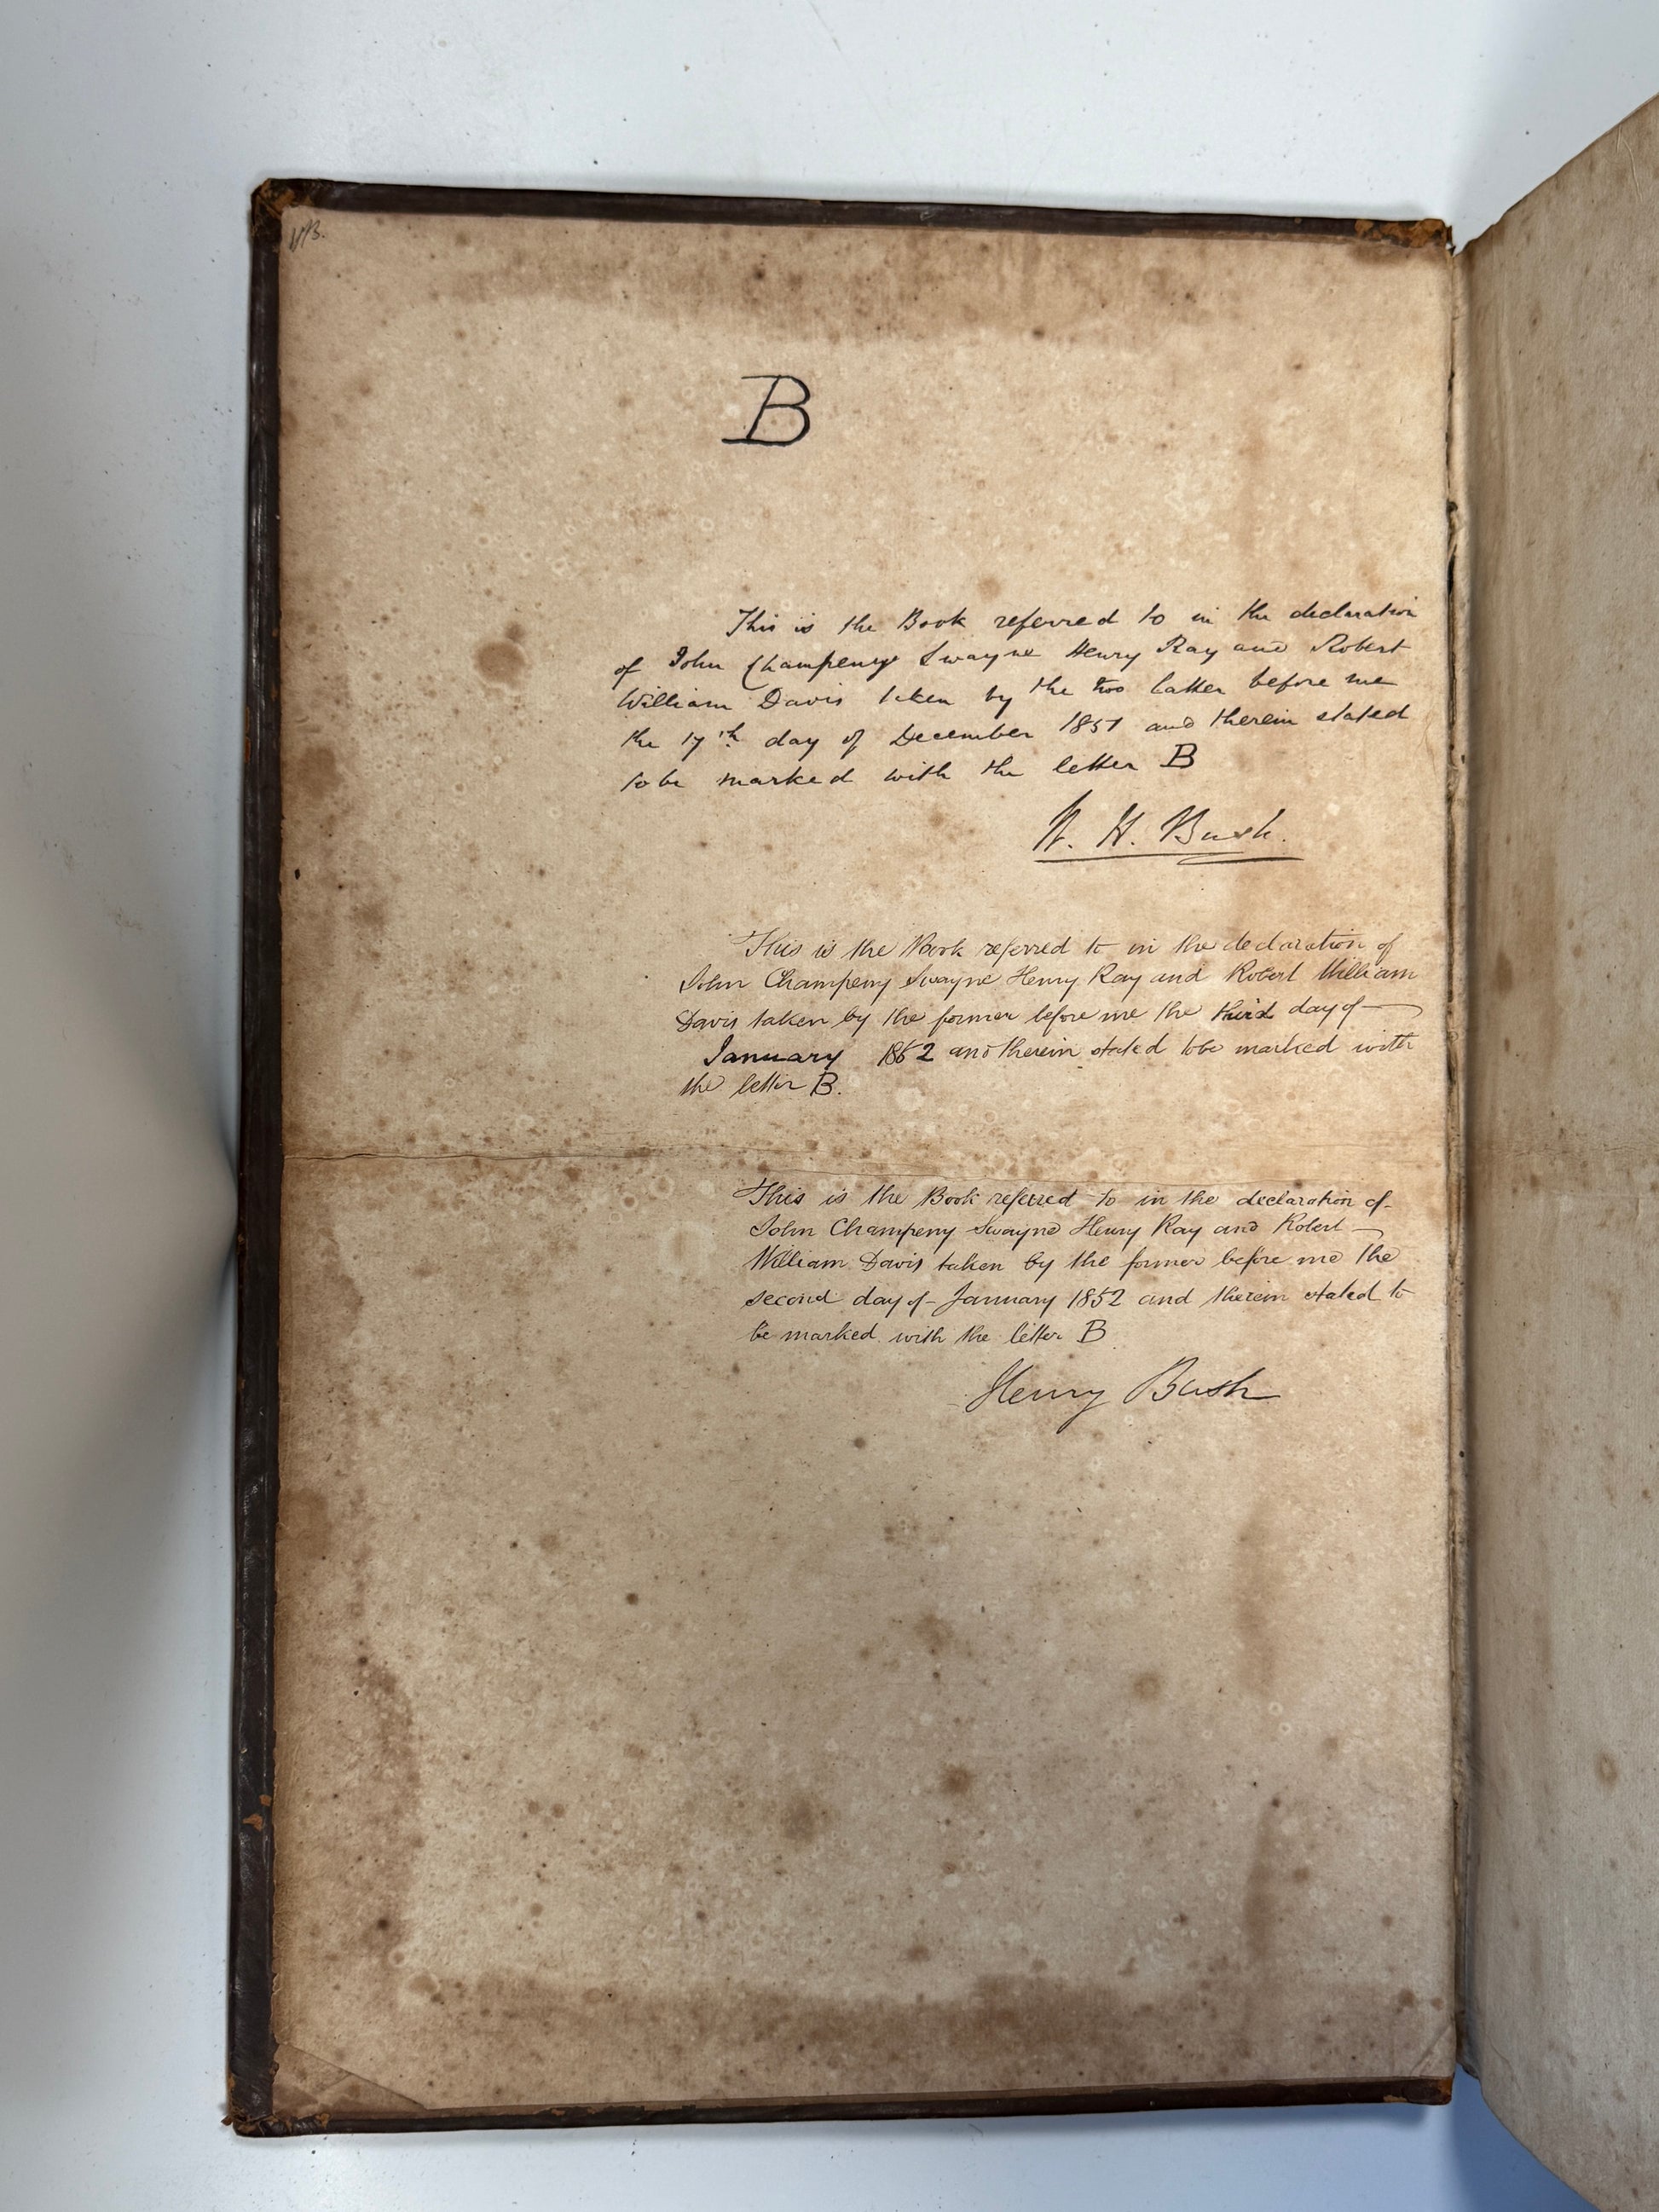 B
This is the Book referred to in the declaration
of John Champeny Swayne Henry Ray and Robert
William Davis taken by the two latter before me
the 17th day of December 1851 and therein stated
to be marked with the letter B
H. Bush.
This is the Book referred to in the declaration of
John Champeny Swayne Henry Ray and Robert William
Davis taken by the former before me the third day of
January 1852 and therein stated to be marked with
the letter B.
This is the Book referred to in the declaration of
John Champeny Swayne Henry Ray and Robert
William Davis taken by the former before me the
second day of January 1852 and therein stated to
be marked with the letter B
Henry Bush